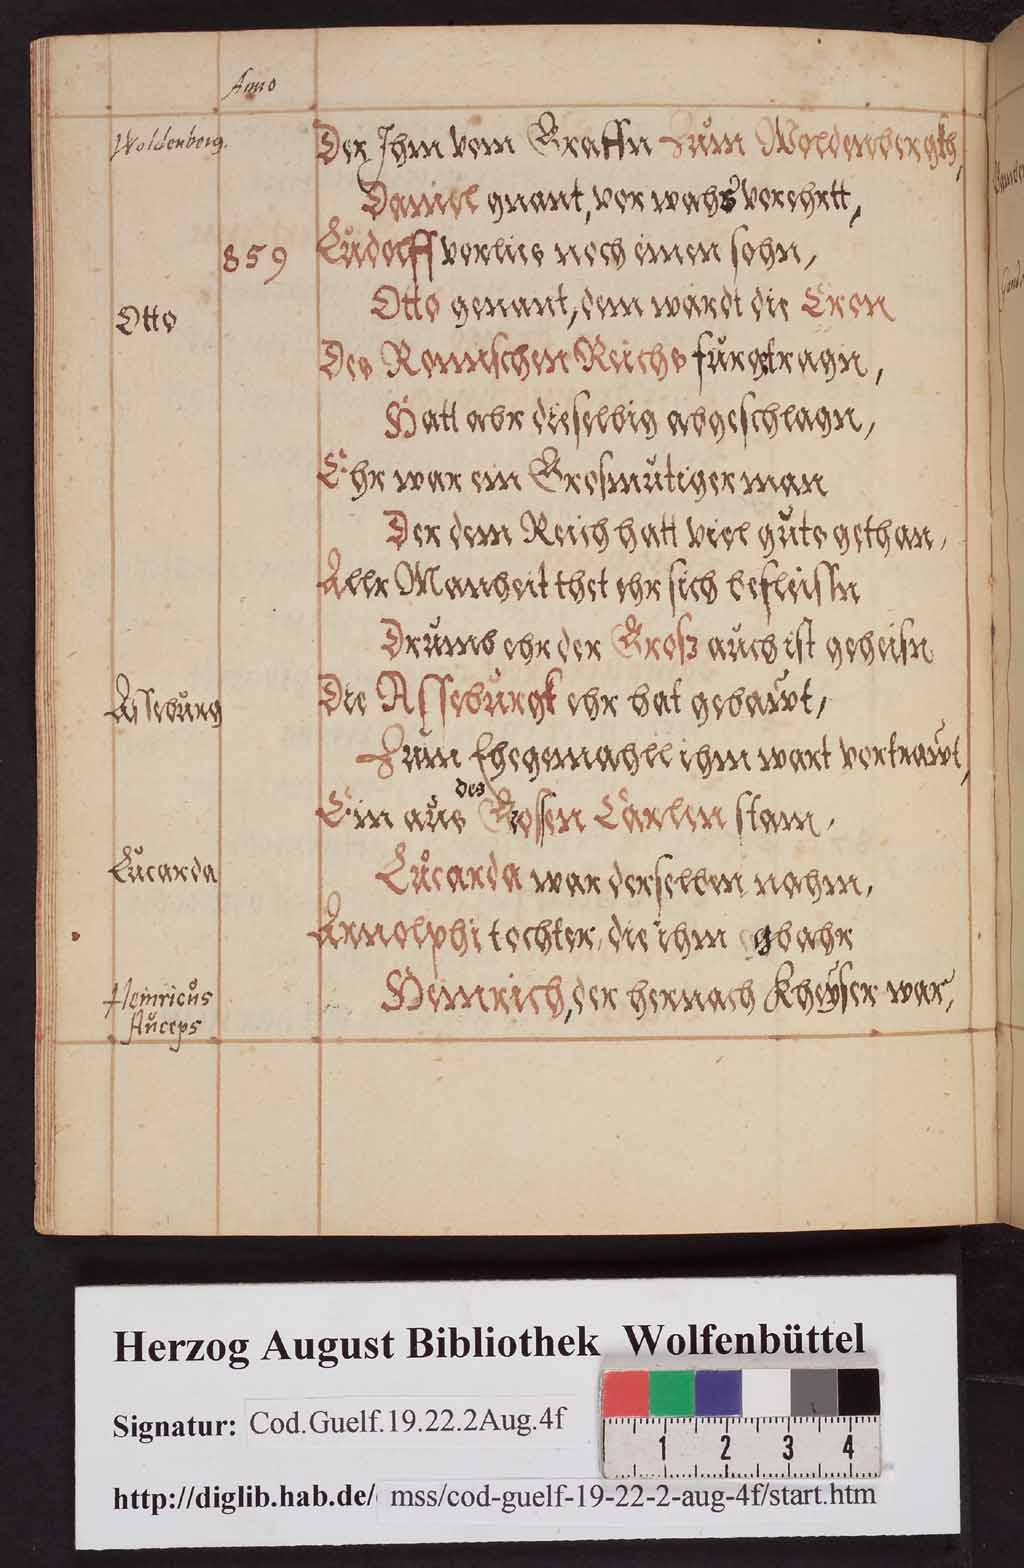 Anno
Woldenberg.
Der Ihm vom Graffn Zum Woldenbergkh,
Daniel gnant, vor wahr verehrtt,
859
Ludolff verlies noch einen sohn,
Otto
Otto genant, dem wardt die Cron
Des Romischen Reichs fürgtragn,
Hatt abr dieselbig abgeschlagn,
Ehr war ein Grosmütiger man
Der dem Reich hatt viel guts gethan,
Allr Manheit thet ehr sich befleissn
Drumb ehr der Groß auch ist geheisn
Asseburg
Die Asseburgk ehr hat gebawt,
Zum Ehegemahll ihm wart vertrawt,
des
Ein aus Grossen Carlen stam,
Lucarda
Lucarda war derselben nahm,
Arnolphi tochter, die ihm gbahr
Heinricus
Auceps
Heinrich, der hernach Kheyser war,
Herzog August Bibliothek Wolfenbüttel
Signatur: Cod.Guelf.19.22.2Aug.4f
1 2 3 4
http://diglib.hab.de/ mss/cod-guelf-19-22-2-aug-4f/start.htm